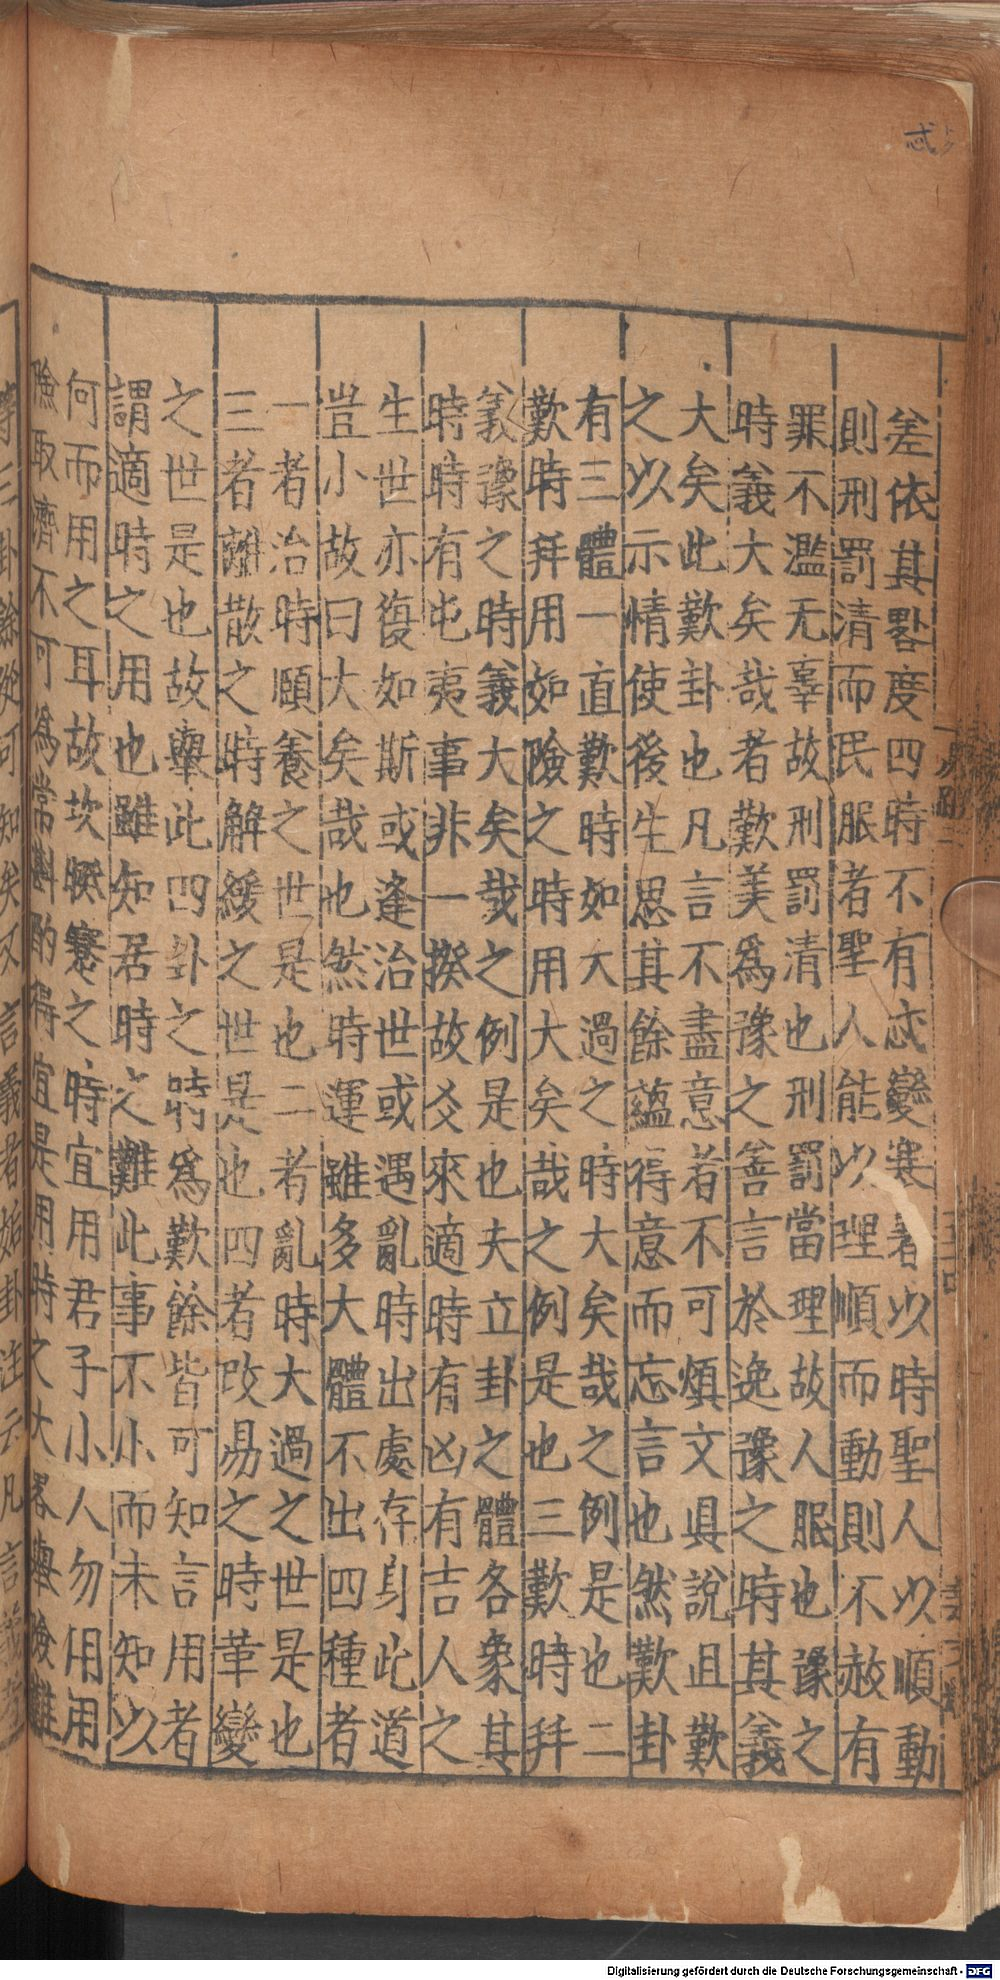 差依其晷度四時不有忒變寒暑以時聖人以順動
則刑罰清而民服者聖人能以理順而動則不赦有
罪不濫无辜故刑罰清也刑罰當理故人服也豫之
時義大矣哉者歎美爲豫之善言於逸豫之時其義
大矣此歎卦也凡言不盡意者不可煩文具說且歎
之以示情使後生思其餘蘊得意而忘言也然歎卦
有三體一直歎時如大過之時大矣哉之例是也二
歎時幷用如險之時用大矣哉之例是也三歎時幷
義豫之時義大矣哉之例是也夫立卦之體各象其
時時有屯夷事非一揆故爻來適時有凶有吉人之
生世亦復如斯或逢治世或遇亂時出處存身此道
豈小故曰大矣哉也然時運雖多大體不出四種者
一者治時頤養之世是也二者亂時大過之世是也
三者離散之時解緩之世是也四者改易之時革變
之世是也故舉此四卦之時爲歎餘皆可知言用者
謂適時之用也雖知居時之難此事不小而未知以
何而用之耳故坎睽蹇之時宜用君子小人勿用用
險取濟不可爲常斟酌得宜是用時之大畧舉險難
等三卦餘從可知矣又言義者姤卦注云凡言義者
忒
Digitalisierung gefördert durch die Deutsche Forschungsgemeinschaft - DFG